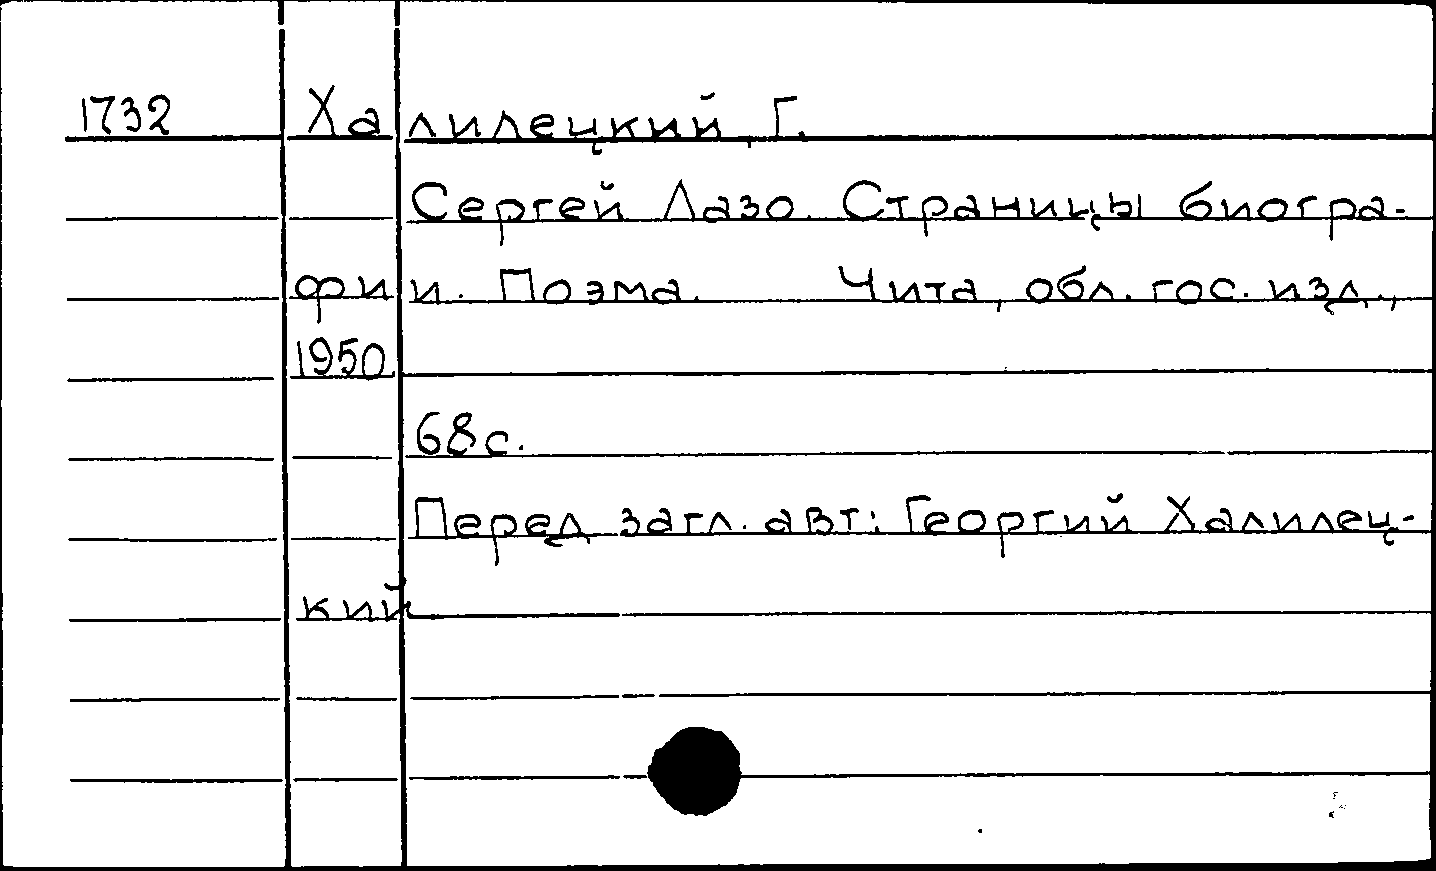 1732 Халилецкий, Г.
Сергей Лазо. Страницы биогра-
фии. Поэма. Чита, обл. гос. изд.,
1950.
68 с.
Перед загл. авт.: Георгий Халилец-
кий